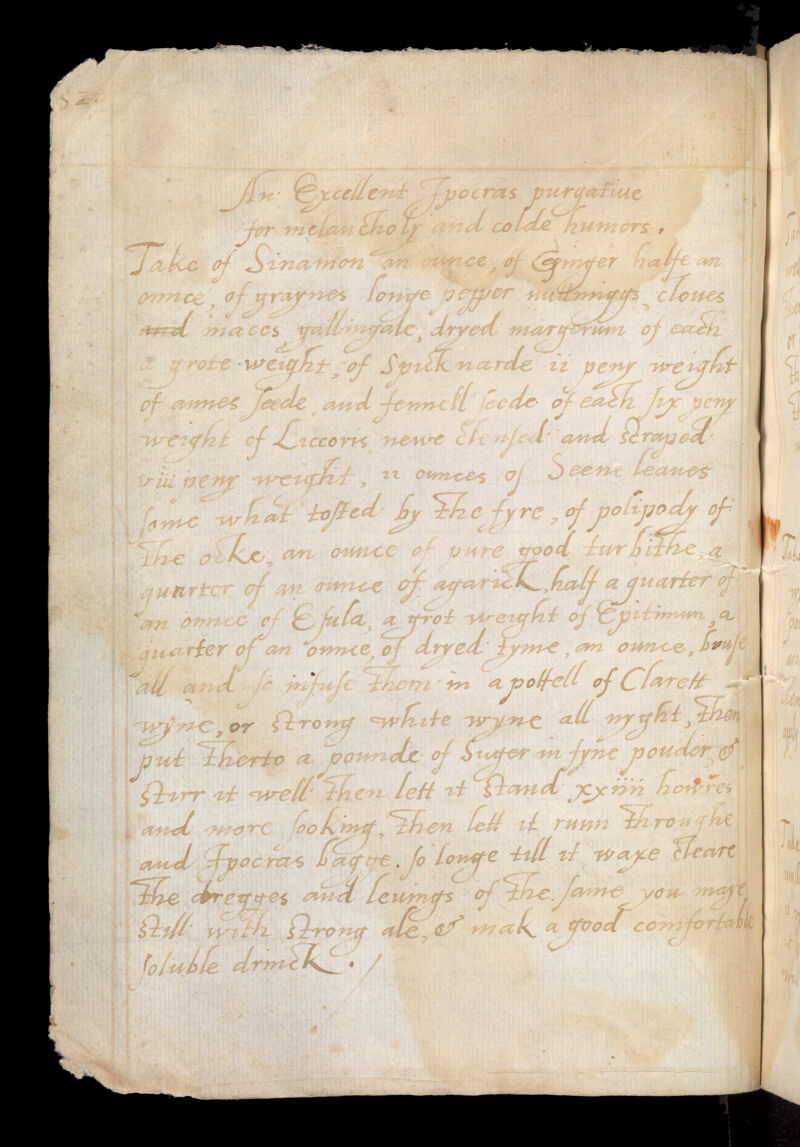 52
An Excellent Ipocras purgatiue
for melancholy and colde humors.
Take of Sinamon an ounce, of Ginger halfe an
ounce, of graynes longe pepper nuttmiggs, cloues
and maces, gallingale, dryed margerum of each
a grote weight, of Spicknarde ii peny weight
of annes seede, and fennell seede of each six peny
weight of Liccoris newe clensed and scraped
viii peny weight, ii ounces of Seene leaues
some what tosted by the fyre, of polipody of
the ocke, an ounce of pure good turbithe, a
quarter of an ounce of agarick, half a quarter of
an ounce of Esula, a grot weight of Epitimun, a
quarter of an ounce, of dryed tyme, an ounce, bruse
all and so infuse them in a pottell of Clarett
wyne, or strong white wyne all nyght, then
put therto a pounde of Suger in fyne pouder, &
stirr it well then lett it stand xxiiii howres
and more sooking, then lett it runn throughe
and Ipocras bagge. so longe till it waxe cleare
the dregges and leuings of the same you maye
still with strong ale, & mak a good comfortable
soluble drinck.